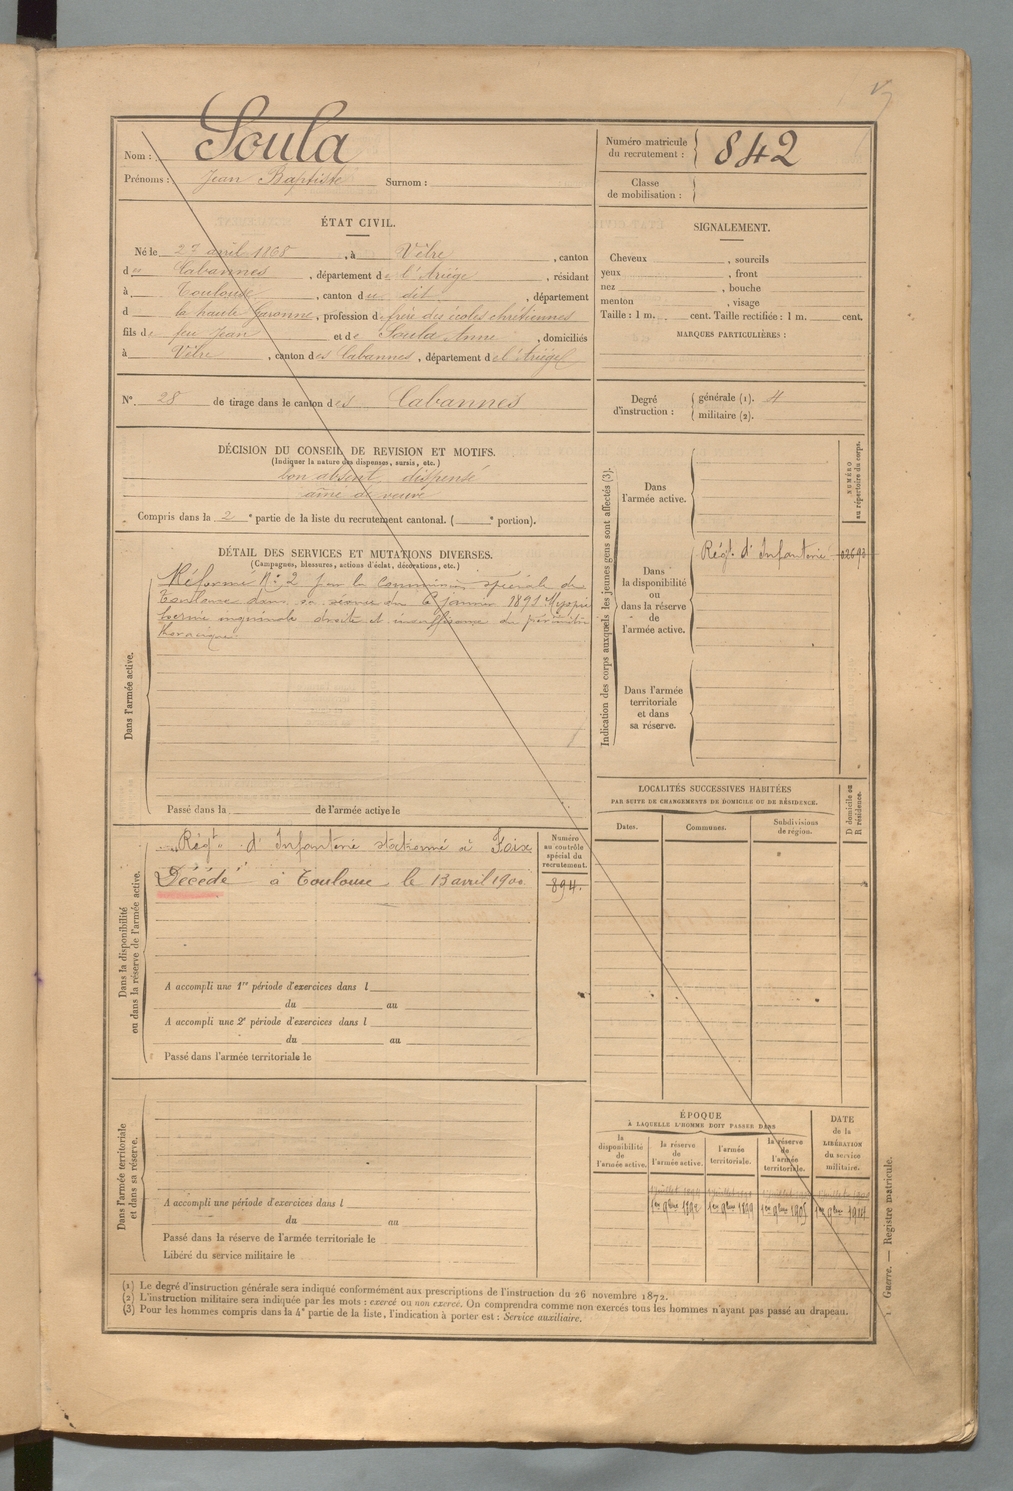 Nom : Soula
Prénoms : Jean Baptiste Surnom :
Numéro matricule du recrutement : 842
Classe de mobilisation :
ÉTAT CIVIL.
Né le avril 1868, à Vèbre, canton
des Cabannes, département de l'Ariége, résidant
à Toulouse, canton du dit, département
d la haute Garonne, profession de frère des écoles chrétiennes
fils de feu Jean et de Soula Anne, domiciliés
à Vèbre, canton des Cabannes, département de l'Ariége
SIGNALEMENT.
Cheveux , sourcils
yeux , front
nez , bouche
menton , visage
Taille : 1 m. cent. Taille rectifiée : 1 m. cent.
MARQUES PARTICULIÈRES :
N° 28 de tirage dans le canton des Cabannes
Degré d'instruction : générale (1). 4
militaire (2).
DÉCISION DU CONSEIL DE REVISION ET MOTIFS.
(Indiquer la nature des dispenses, sursis, etc.)
bon absent, dispensé
aîné de veuve
Compris dans la 2e partie de la liste du recrutement cantonal. ( e portion).
DÉTAIL DES SERVICES ET MUTATIONS DIVERSES.
(Campagnes, blessures, actions d'éclat, décorations, etc.)
Dans l'armée active.
Réformé N° 2 par la commission spéciale de
Toulouse dans sa séance du 6 janvier 1891. Myopie
hernie inguinale droite et insuffisance du périmètre
thoracique
Passé dans la de l'armée active le
Indication des corps auxquels les jeunes gens sont affectés (3).
NUMÉRO au répertoire du corps.
Dans l'armée active.
Dans la disponibilité ou dans la réserve de l'armée active.
Régt. d'Infanterie
Dans l'armée territoriale et dans sa réserve.
LOCALITÉS SUCCESSIVES HABITÉES
PAR SUITE DE CHANGEMENTS DE DOMICILE OU DE RÉSIDENCE.
D domicile ou R résidence.
Dates. Communes. Subdivisions de région.
Dans la disponibilité ou dans la réserve de l'armée active.
Régt d'Infanterie stationné à Foix
Décédé à Toulouse le 13 avril 1900
Numéro au contrôle spécial du recrutement.
894.
A accompli une 1re période d'exercices dans l
du au
A accompli une 2e période d'exercices dans l
du au
Passé dans l'armée territoriale le
Dans l'armée territoriale et dans sa réserve.
A accompli une période d'exercices dans l
du au
Passé dans la réserve de l'armée territoriale le
Libéré du service militaire le
ÉPOQUE
À LAQUELLE L'HOMME DOIT PASSER DANS
la disponibilité de l'armée active.
la réserve de l'armée active.
l'armée territoriale.
la réserve de l'armée territoriale.
DATE de la LIBÉRATION du service militaire.
1er 9bre 1892 1er 9bre 1899 1er 9bre 1905 1er 9bre 1914
(1) Le degré d'instruction générale sera indiqué conformément aux prescriptions de l'instruction du 26 novembre 1872.
(2) L'instruction militaire sera indiquée par les mots : exercé ou non exercé. On comprendra comme non exercés tous les hommes n'ayant pas passé au drapeau.
(3) Pour les hommes compris dans la 4e partie de la liste, l'indication à porter est : Service auxiliaire.
Guerre. — Registre matricule.